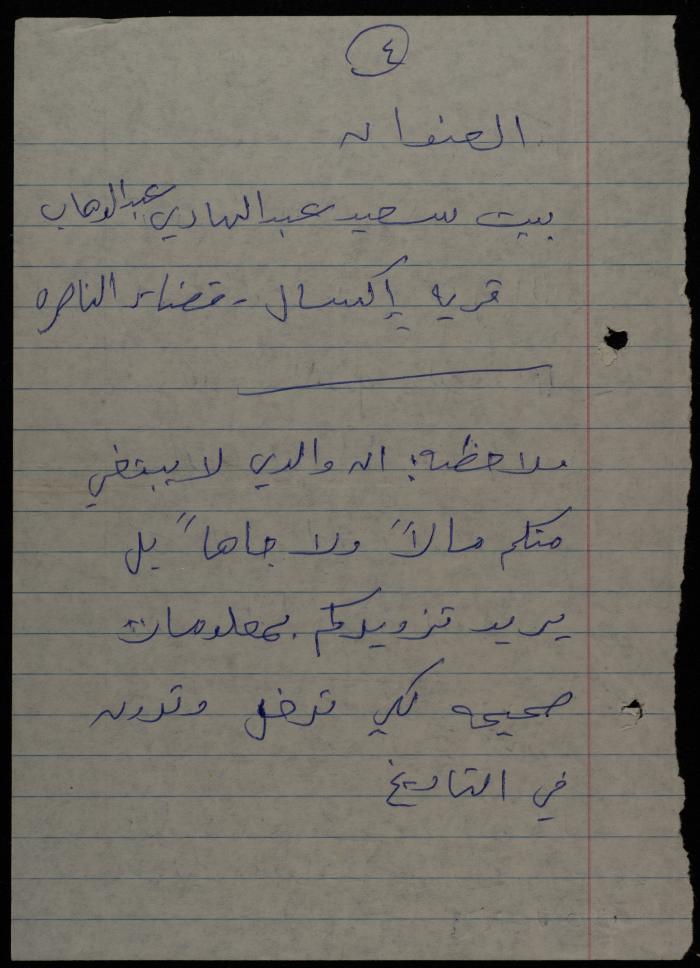 ٤
العنوان
بيت سعيد عبدالهادي عبدالوهاب
قريه إكسال - قضاء الناصره
ملاحظه: ان والدي لا يبتغي
منكم مالاً ولا جاهاً بل
يريد تزويدكم بمعلومات
صحيحه لكي تدخل وتدون
في التاريخ